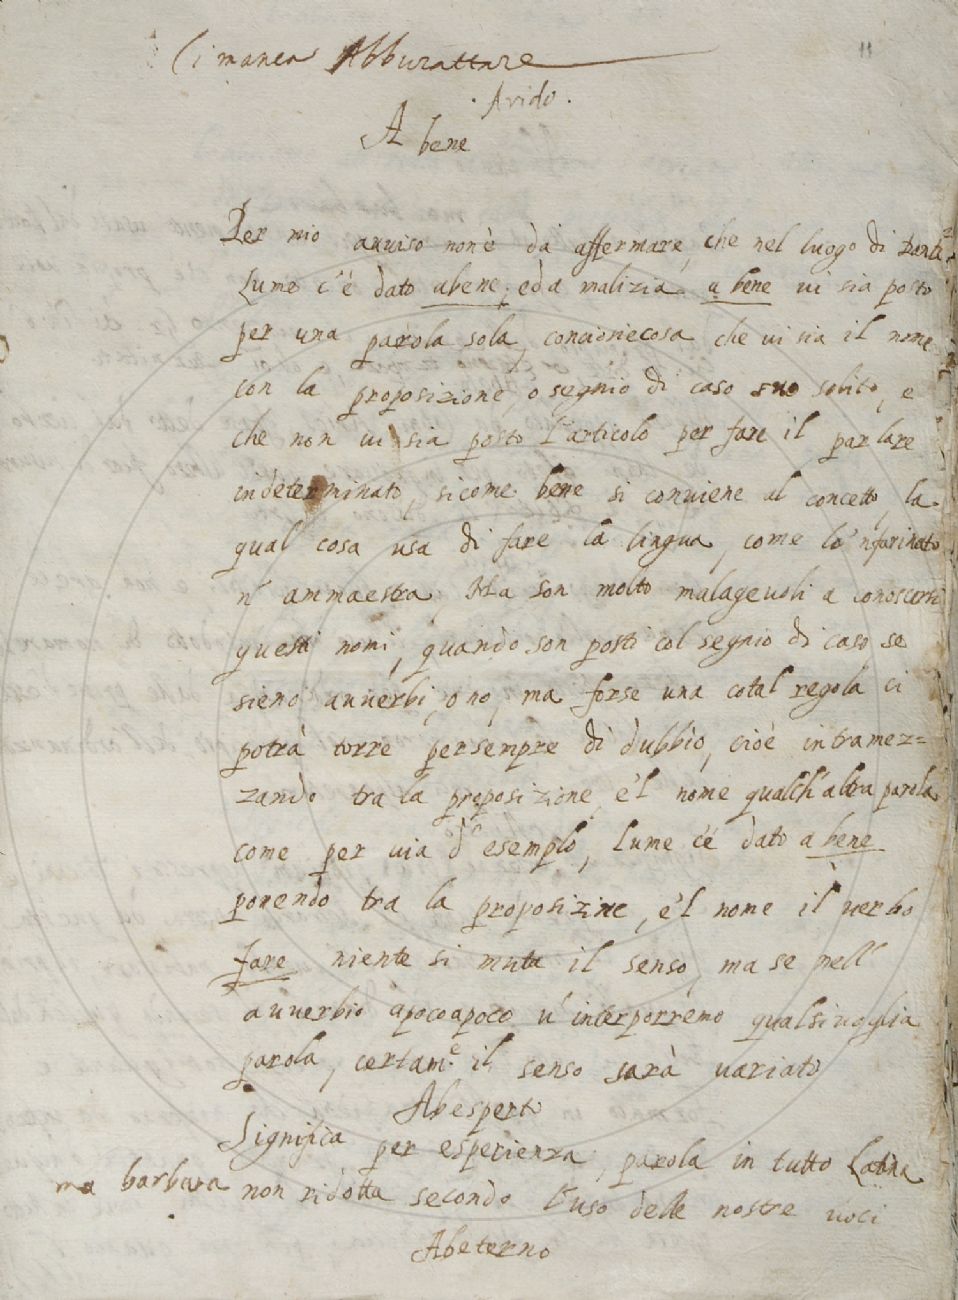 11
Ci manca Abburattare
Arido.
A bene
Per mio avviso non è da affermare, che nel luogo di Dante
Lume c'è dato abene, ed a malizia a bene vi sia posto
per una parola sola, conciosiecosa che vi sia il nome
con la proposizione, o segnio di caso suo solito, e
che non vi sia posto l'articolo per fare il parlare
indeterminato, sicome bene si conviene al concetto, la
qual cosa usa di fare la lingua, come lo 'nfarinato
n' ammaestra. Ma son molto malagevoli a conoscersi
questi nomi, quando son posti col segnio di caso se
sieno avverbi, o no, ma forse una cotal regola ci
potrà torre persempre di dubbio, cioè intramez=
zando tra la preposizione, e'l nome qualch'altra parola
come per via d'esemplo, Lume c'è dato a bene
ponendo tra la proposizine, e'l nome il verbo
fare niente si muta il senso, ma se nell'
avverbio apocoapoco v'interporremo qualsivoglia
parola, certam.e il senso sarà variato
Abesperto
Significa per esperienza, parola in tutto Latina
ma barbara non ridotta secondo l'uso delle nostre voci
Abeterno